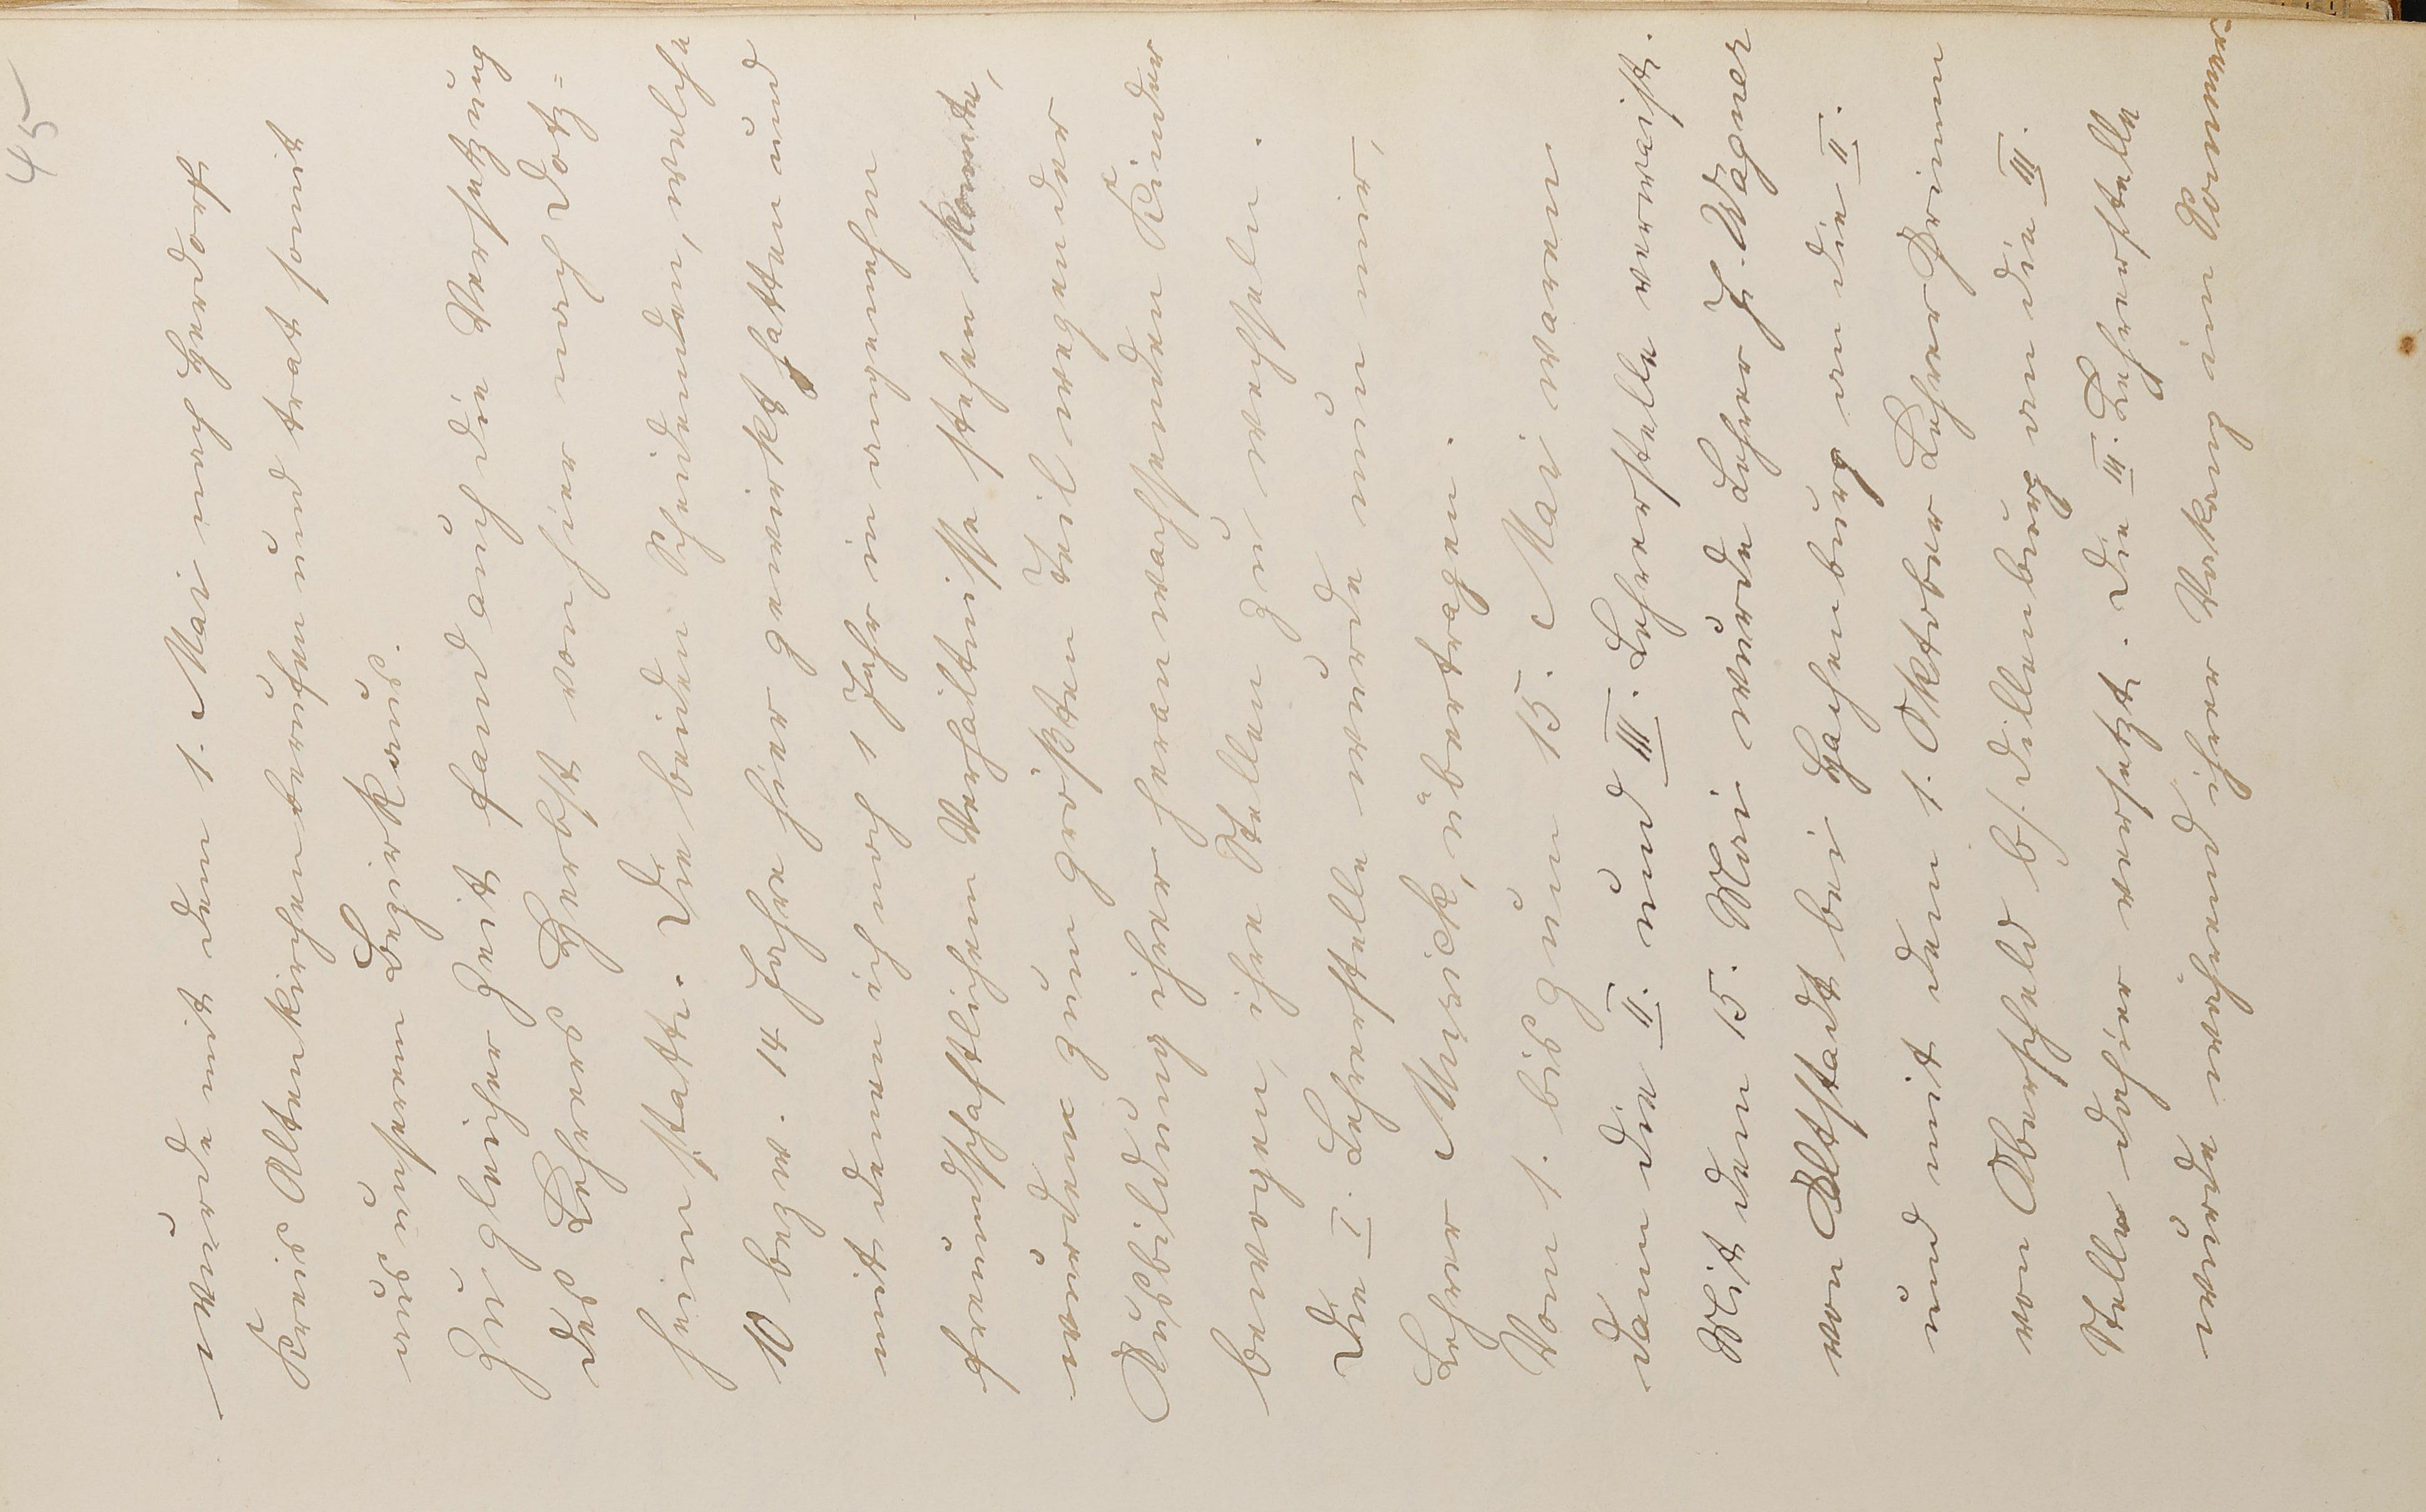 45
wurde mit dem 1. Mai nach Herdorf
Kreis Altenkirchen berufen und trat somit
aus unserem Kreise
Zu gleicher Zeit fand auch die Versetzung
des Lehrers Herbst von hier nach Dotz=
heim statt. Die beiden Scheidenden, welche
10 bezw. 14 Jahre hier gewirkt hatten und
mit denen ich nach 1 Jahr in
freundschaftlichem Verhältnisse stehen konnte,
wurden zum größten Teil wegen der
Ausbildung ihrer heranwachsenden Kinder
bewogen, ihre Stellen zu wechseln.
Die I. Lehrerstelle wurde nun mir,
Lehrer Müri.., übertragen.
Vom 1. bis zum 15. Mai waren
dann die II. und III. Lehrerstelle verwaist.
Mit dem 15. Mai wurde Lehrer J. Wagner
von Altstadt bei Hachenburg an die II.
und mit dem 1. Oktober Lehrer
von Oberscheld b/Dillenburg an die III.
Stelle dahier versetzt. Die III. Lehrerstelle
wurde in der Zwischen